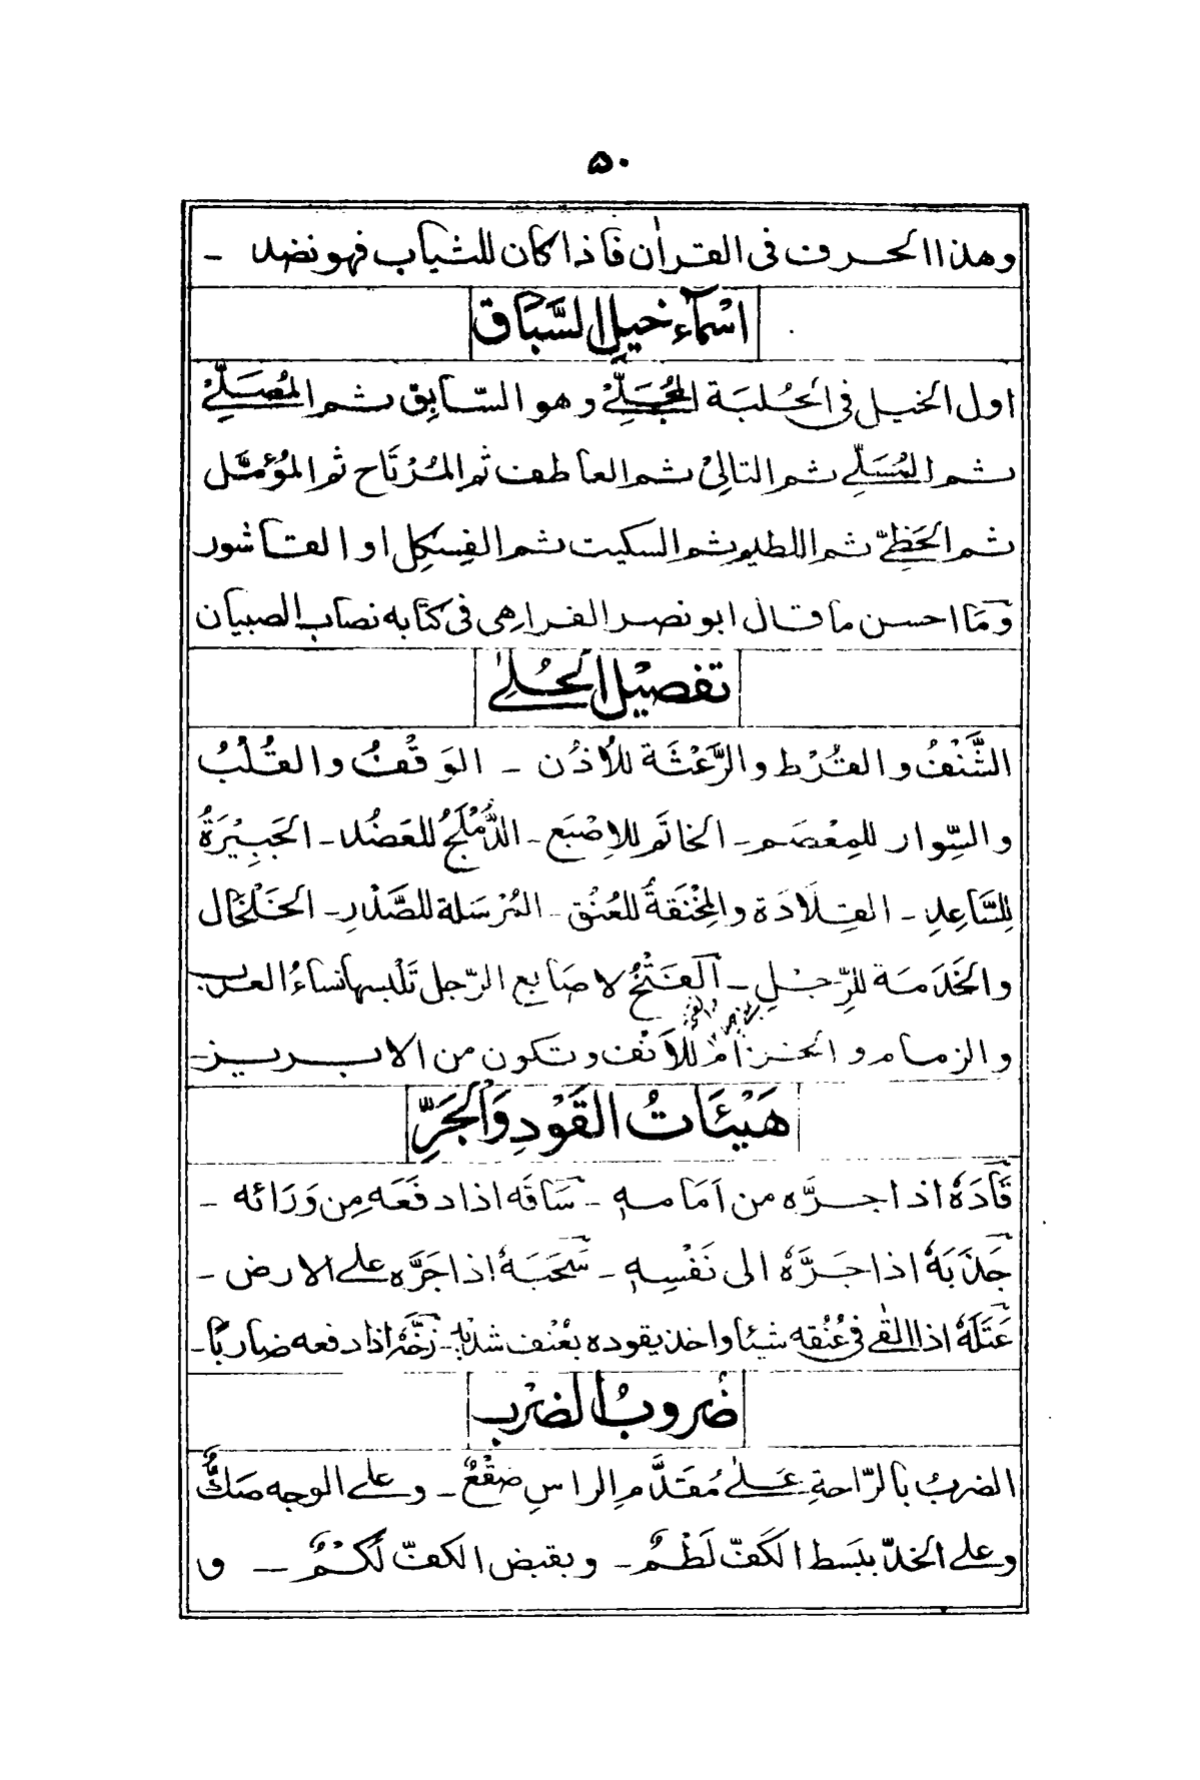 ۵۰
وهذا الحرف فى القرآن فاذا كان للثياب فهو نضد -
اسْمَآء خيل السَّبَاق
اول الخيل فى الحُلبَة المُجَلّيْ وهو السّابِق ثم المُصَلّيْ
ثم المُسَلّي ثم التالِيْ ثم العاطف ثم المُرْتَاح ثم المُؤمَّل
ثم الحَظِيّ ثم اللطيم ثم السكيت ثم الفِسكِل او القاشور
وَمَا احسن ما قال ابو نصر الفراهى فى كتابه نصاب الصبيان
تفصيل الحُلٰي
الشَّنْفُ و القُرْط و الرَّعْثَة للاُذُن - الوَقْفُ و القُلْبُ
و السِّوار للمِعْصَم - الخاتَم للاِصْبَع - الدُّمْلَجُ للعَضُد - الجَبِيْرَةُ
لِلسَّاعِدِ - القِلَادَة و المِخْنَقَةُ للعُنْق - المُرْسَلة للصَّدْرِ - الخَلْخَال
و الخَدَمَة للرِّجْلِ - اَلفَتْخُ لاصَابع الرّجل تَلْبسها نساءُ العرب
و الزمام و الخزام للاَنْف و تكون من الابريز -
هَيْئَاتُ القَوْدِ وَالجَرِّ
قَادَهٗ اذا جرَّه من اَمَامه - سَاقَه اذا دفَعَه مِن وَرَائه -
جَذَبَهٗ اذا جَرَّهٗ الى نَفْسِه - سَحَبَهٗ اذا جَرَّه على الارض -
عَتَلَهٗ اذا القٰى فى عُنُقه شيئا واخذ يقوده بعُنف شديد - زَخَّهٗ اذا دفعه ضاربًا -
ضُروبُ الضرْب
الضربُ بالرّاحةِ عَلىٰ مُقدَّمِ الراسِ صَقْعٌ - وعلى الوجه صَكٌّ
وعلى الخدّ ببَسط الكَفّ لَطْمٌ - وبقبض الكفّ لَكْمٌ - و